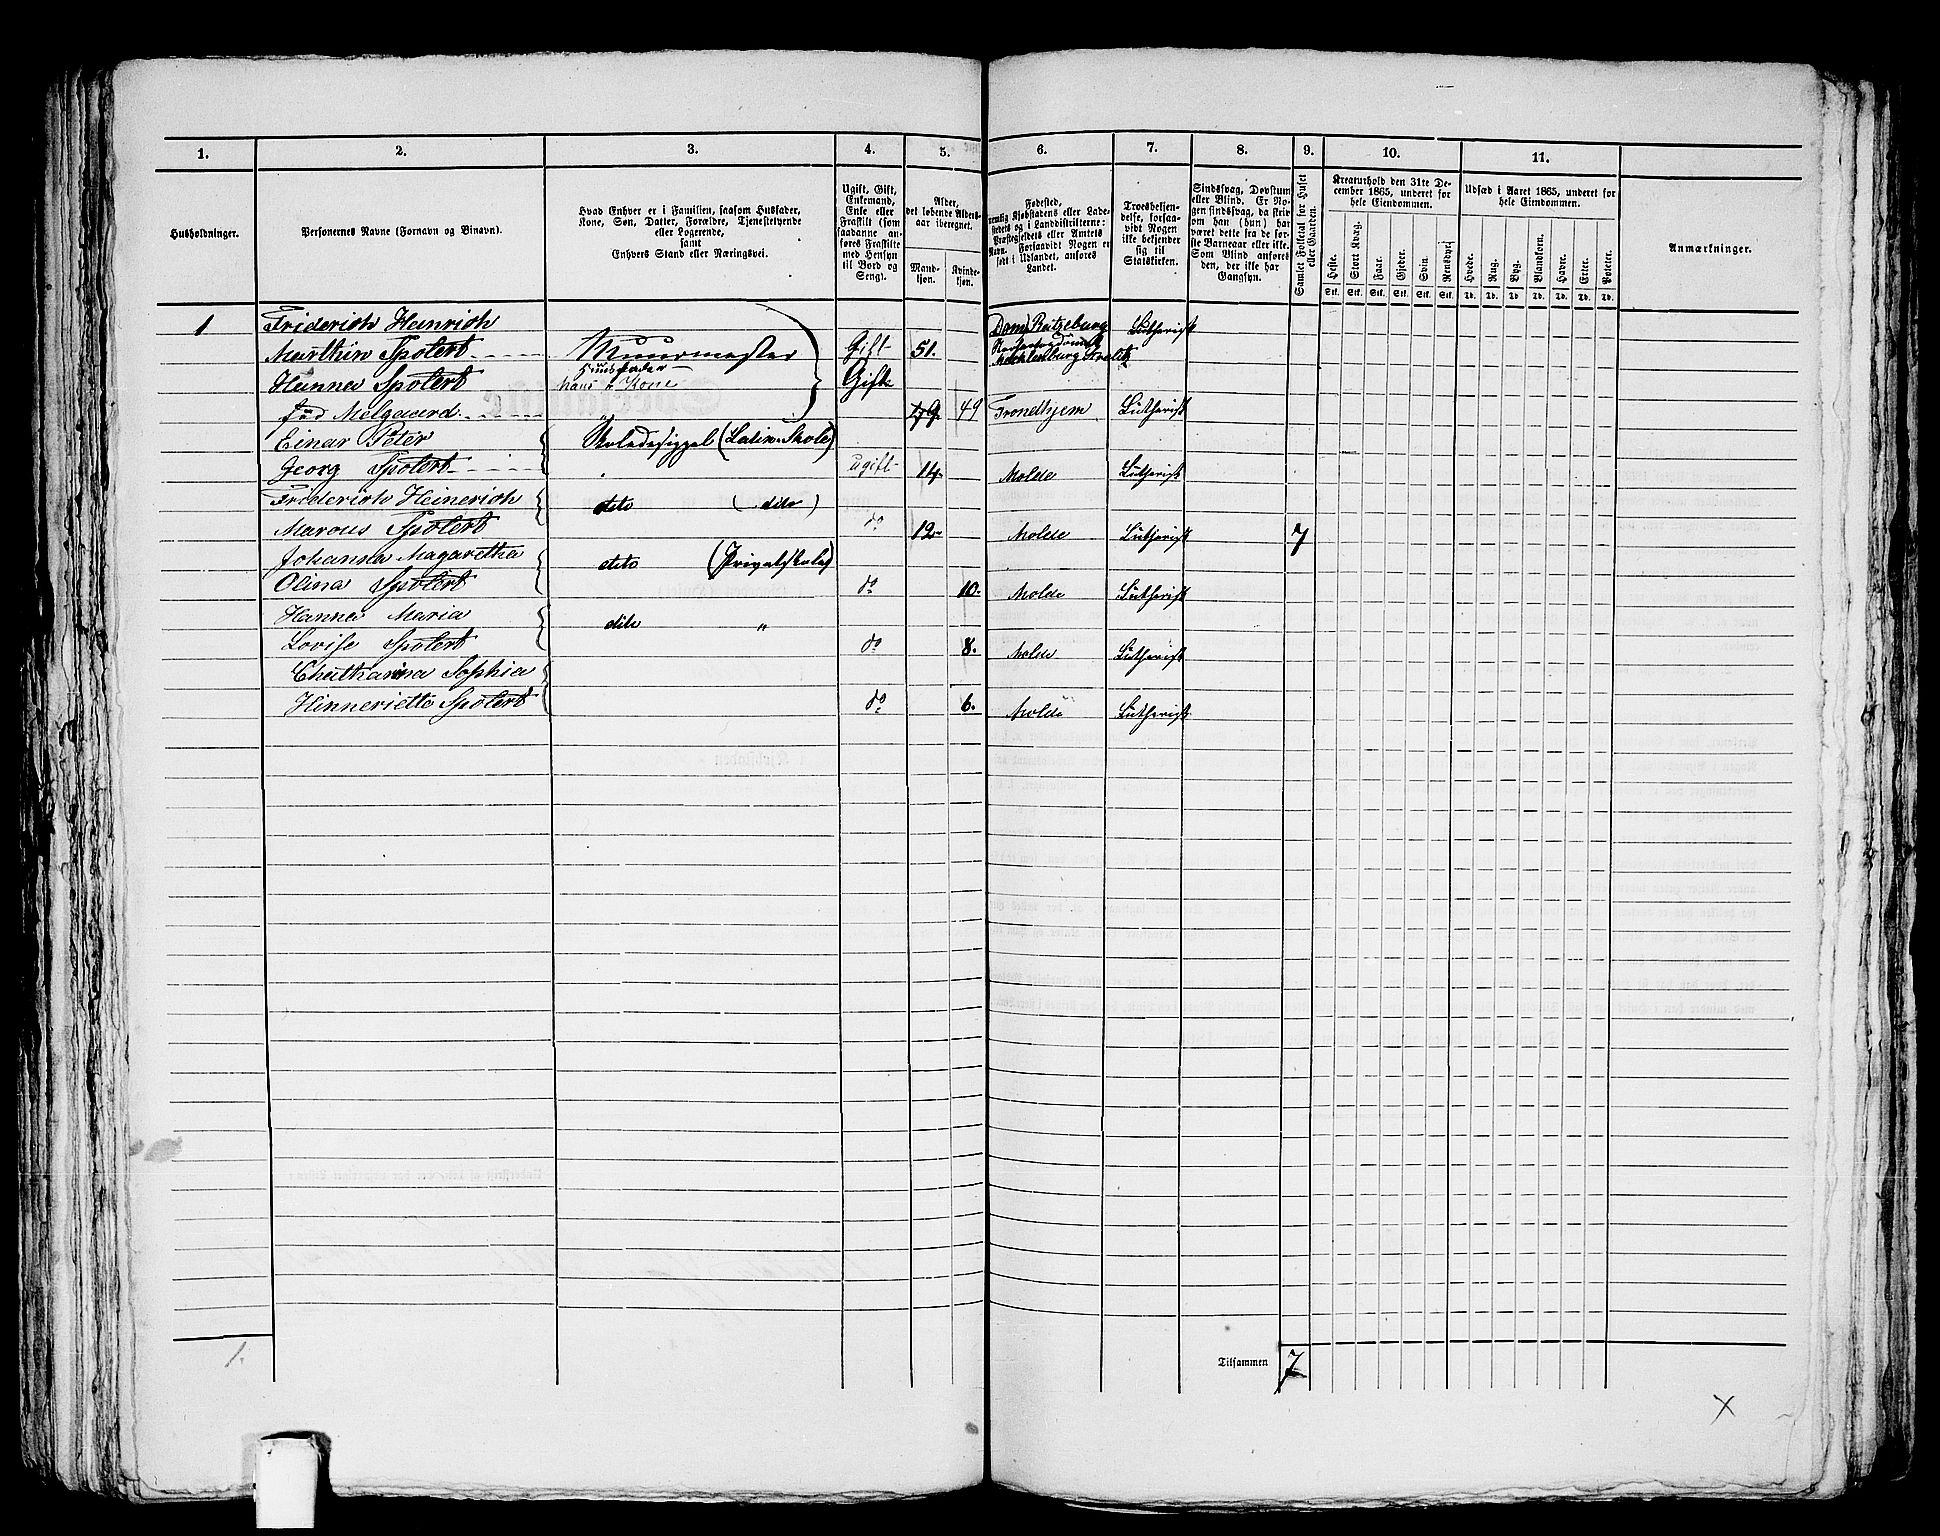 1. 2. 3. 4. 5. 6. 7. 8. 9. 10. 11.
Husholdninger.
Personernes Navne (Fornavn og Binavn).
Hvad Enhver er i Familien, saasom Husfader,
Kone, Søn, Datter, Forældre, Tjenestetyende
eller Logerende,
samt
Enhvers Stand eller Næringsvei.
Ugift, Gift,
Enkemand,
Enke eller
Fraskilt (som
saadanne an-
føres Fraskilte
med Hensyn
til Bord og
Seng).
Alder,
det løbende Alders-
aar iberegnet.
Mand-
kjøn.
Kvinde-
kjøn.
Fødested,
nemlig Kjøbstadens eller Lade-
stedets og i Landdistrikterne:
Præstegjeldets eller Amtets
Navn. Forsaavidt Nogen er
født i Udlandet, anføres
Landet.
Troesbekjen-
delse, forsaa-
vidt Nogen
ikke bekjender
sig til
Statskirken.
Sindssvag, Døvstum
eller Blind. Er No-
gen sindssvag, da skriv
om han (hun) har
været dette fra de før-
ste Barneaar eller ikke.
Som Blind anføres
den, der ikke har
Gangsyn.
Samlet Folketal for Huset
eller Gaarden.
Kreaturhold den 31te De-
cember 1865, underet for
hele Eiendommen.
Heste. Stort Kvæg. Faar. Gjeder. Svin. Rensdyr.
Stk. Stk. Stk. Stk. Stk. Stk.
Udsæd i Aaret 1865, underet for
hele Eiendommen.
Hvede. Rug. Byg. Blandkorn. Havre. Erter. Poteter.
Td. Td. Td. Td. Td. Td. Td.
Anmærkninger.
1 Friderich Heinrich Dom Ratzeburg Lutherisk
Marthin Spolert Muurmester Gift 51. Mecklenburg Strelitz
Husfader
Hanna Spolert hans Kone Gift
fød Melgaard " 49 49 Trondhjem Lutherisk
Einar Peter Skoledesippel (Latin-Skole)
Georg Spolert ugift 14 Molde Lutherisk
Friderich Heinerich dito (dito)
Marcus Spolert do 12 Molde Lutherisk 7
Johanna Magaretha dito (Privatskole)
Olina Spolert do 10. Molde Lutherisk
Hanna Maria dito "
Lovise Spolert do 8. Molde Lutherisk
Chatharina Sophia
Hinneriette Spolert do 6. Molde Lutherisk
1.
Tilsammen 7
X